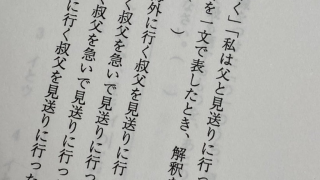 く」「私は父と見送りに行っ
を一文で表したとき、解釈
)
外に行く叔父を見送りに行
く叔父を急いで見送りに行
く叔父を急いで見送りに行っ
に行く叔父を見送りに行った